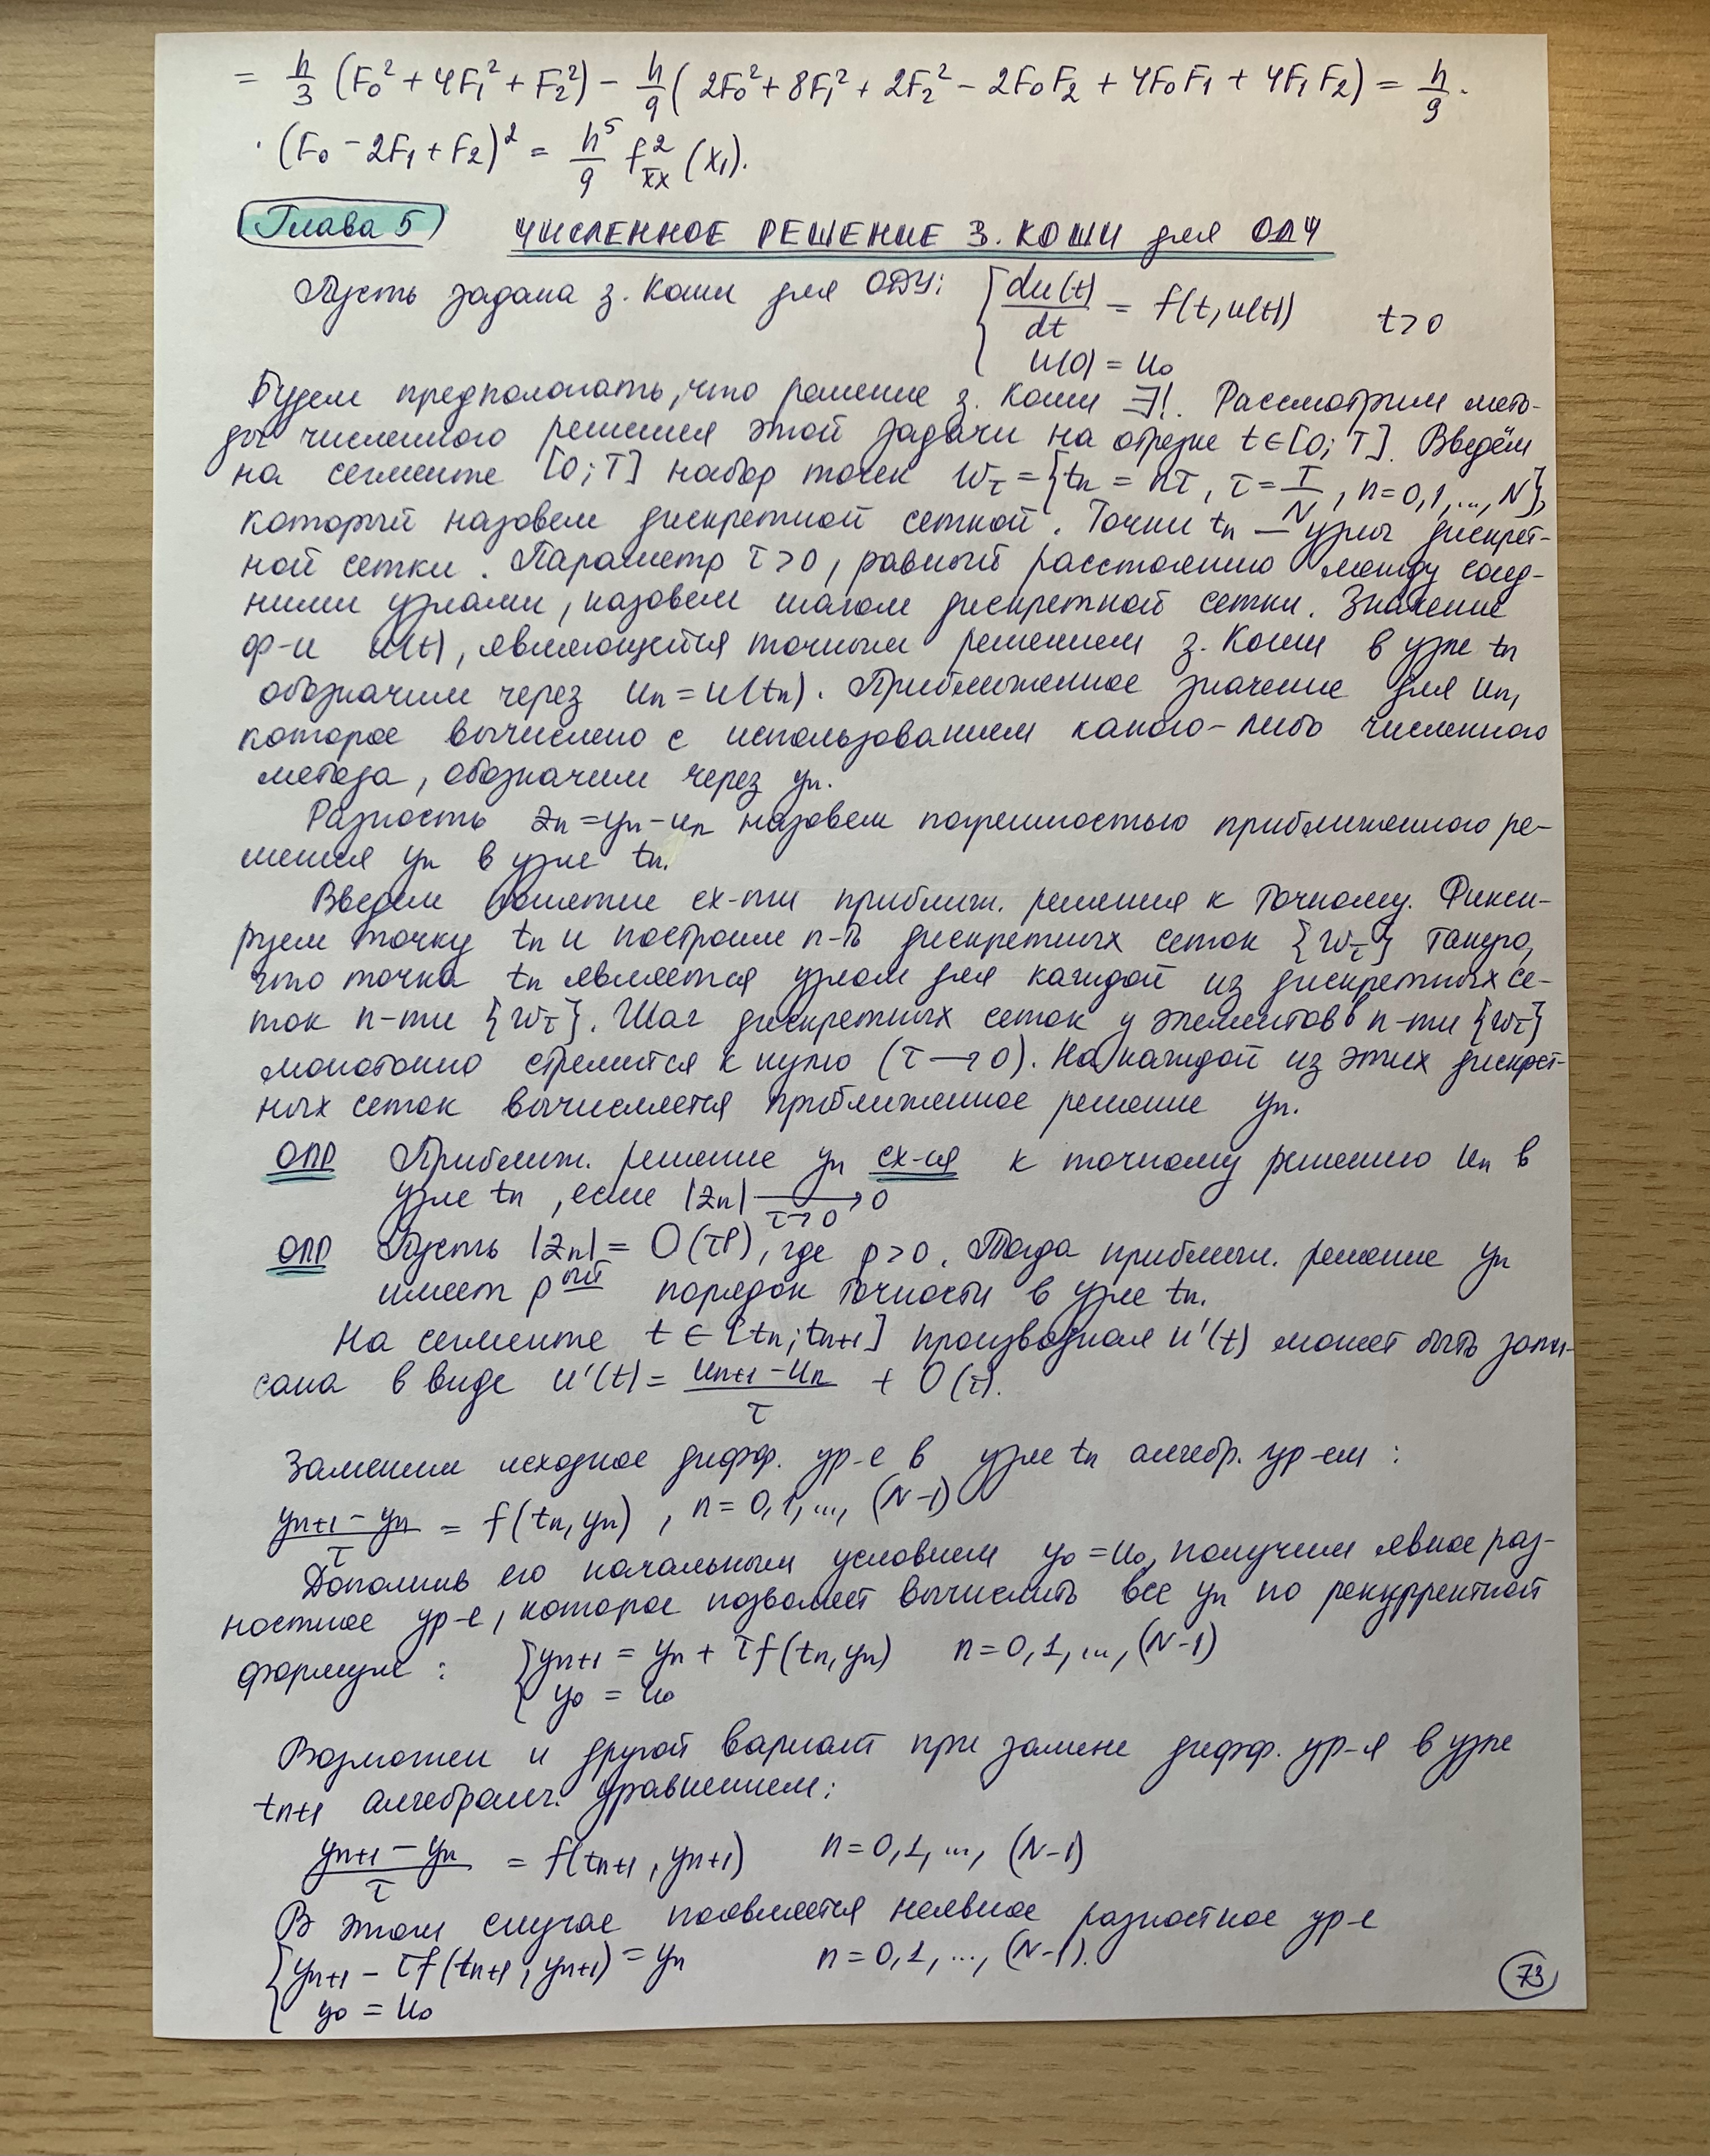 = h/3 (F₀² + 4F₁² + F₂²) − h/9 ( 2F₀² + 8F₁² + 2F₂² − 2F₀F₂ + 4F₀F₁ + 4F₁F₂) = h/9 ·
· (F₀ − 2F₁ + F₂)² = h⁵/9 f²_x̄x (x₁).
Глава 5 ЧИСЛЕННОЕ РЕШЕНИЕ З. КОШИ для ОДУ
Пусть задана з. Коши для ОДУ: { du(t)/dt = f(t, u(t)) t > 0
u(0) = u₀
Будем предполагать, что решение з. Коши ∃!. Рассмотрим мето-
ды численного решения этой задачи на отрезке t ∈ [0; T]. Введём
на сегменте [0; T] набор точек ω_τ = {tₙ = nτ, τ = T/N, n = 0,1,..., N},
который назовем дискретной сеткой. Точки tₙ — узлы дискрет-
ной сетки. Параметр τ > 0, равный расстоянию между сосед-
ними узлами, назовем шагом дискретной сетки. Значение
ф-и u(t), являющейся точным решением з. Коши в узле tₙ
обозначим через uₙ = u(tₙ). Приближенное значение для uₙ,
которое вычислено с использованием какого-либо численного
метода, обозначим через yₙ.
Разность zₙ = yₙ − uₙ назовем погрешностью приближенного ре-
шения yₙ в узле tₙ.
Введем понятие сх-ти приближ. решения к точному. Фикси-
руем точку tₙ и построим п-ть дискретных сеток {ω_τ} такую,
что точка tₙ является узлом для каждой из дискретных се-
ток п-ти {ω_τ}. Шаг дискретных сеток у элементов п-ти {ω_τ}
монотонно стремится к нулю (τ → 0). На каждой из этих дискрет-
ных сеток вычисляется приближенное решение yₙ.
ОПР Приближ. решение yₙ сх-ся к точному решению uₙ в
узле tₙ, если |zₙ| ⟶ 0 τ→0
ОПР Пусть |zₙ| = O(τᵖ), где p > 0. Тогда приближ. решение yₙ
имеет p ый порядок точности в узле tₙ.
На сегменте t ∈ [tₙ; tₙ₊₁] производная u'(t) может быть запи-
сана в виде u'(t) = (uₙ₊₁ − uₙ)/τ + O(τ).
Заменим исходное дифф. ур-е в узле tₙ алгебр. ур-ем :
(yₙ₊₁ − yₙ)/τ = f(tₙ, yₙ) , n = 0,1,..., (N−1)
Дополнив его начальным условием y₀ = u₀, получим явное раз-
ностное ур-е, которое позволяет вычислить все yₙ по рекуррентной
формуле : { yₙ₊₁ = yₙ + τf(tₙ, yₙ) n = 0,1,..., (N−1)
y₀ = u₀
Возможен и другой вариант при замене дифф. ур-я в узле
tₙ₊₁ алгебраич. уравнением:
(yₙ₊₁ − yₙ)/τ = f(tₙ₊₁, yₙ₊₁) n = 0,1,..., (N−1)
В этом случае появляется неявное разностное ур-е
{ yₙ₊₁ − τf(tₙ₊₁, yₙ₊₁) = yₙ n = 0,1,..., (N−1).
y₀ = u₀
73